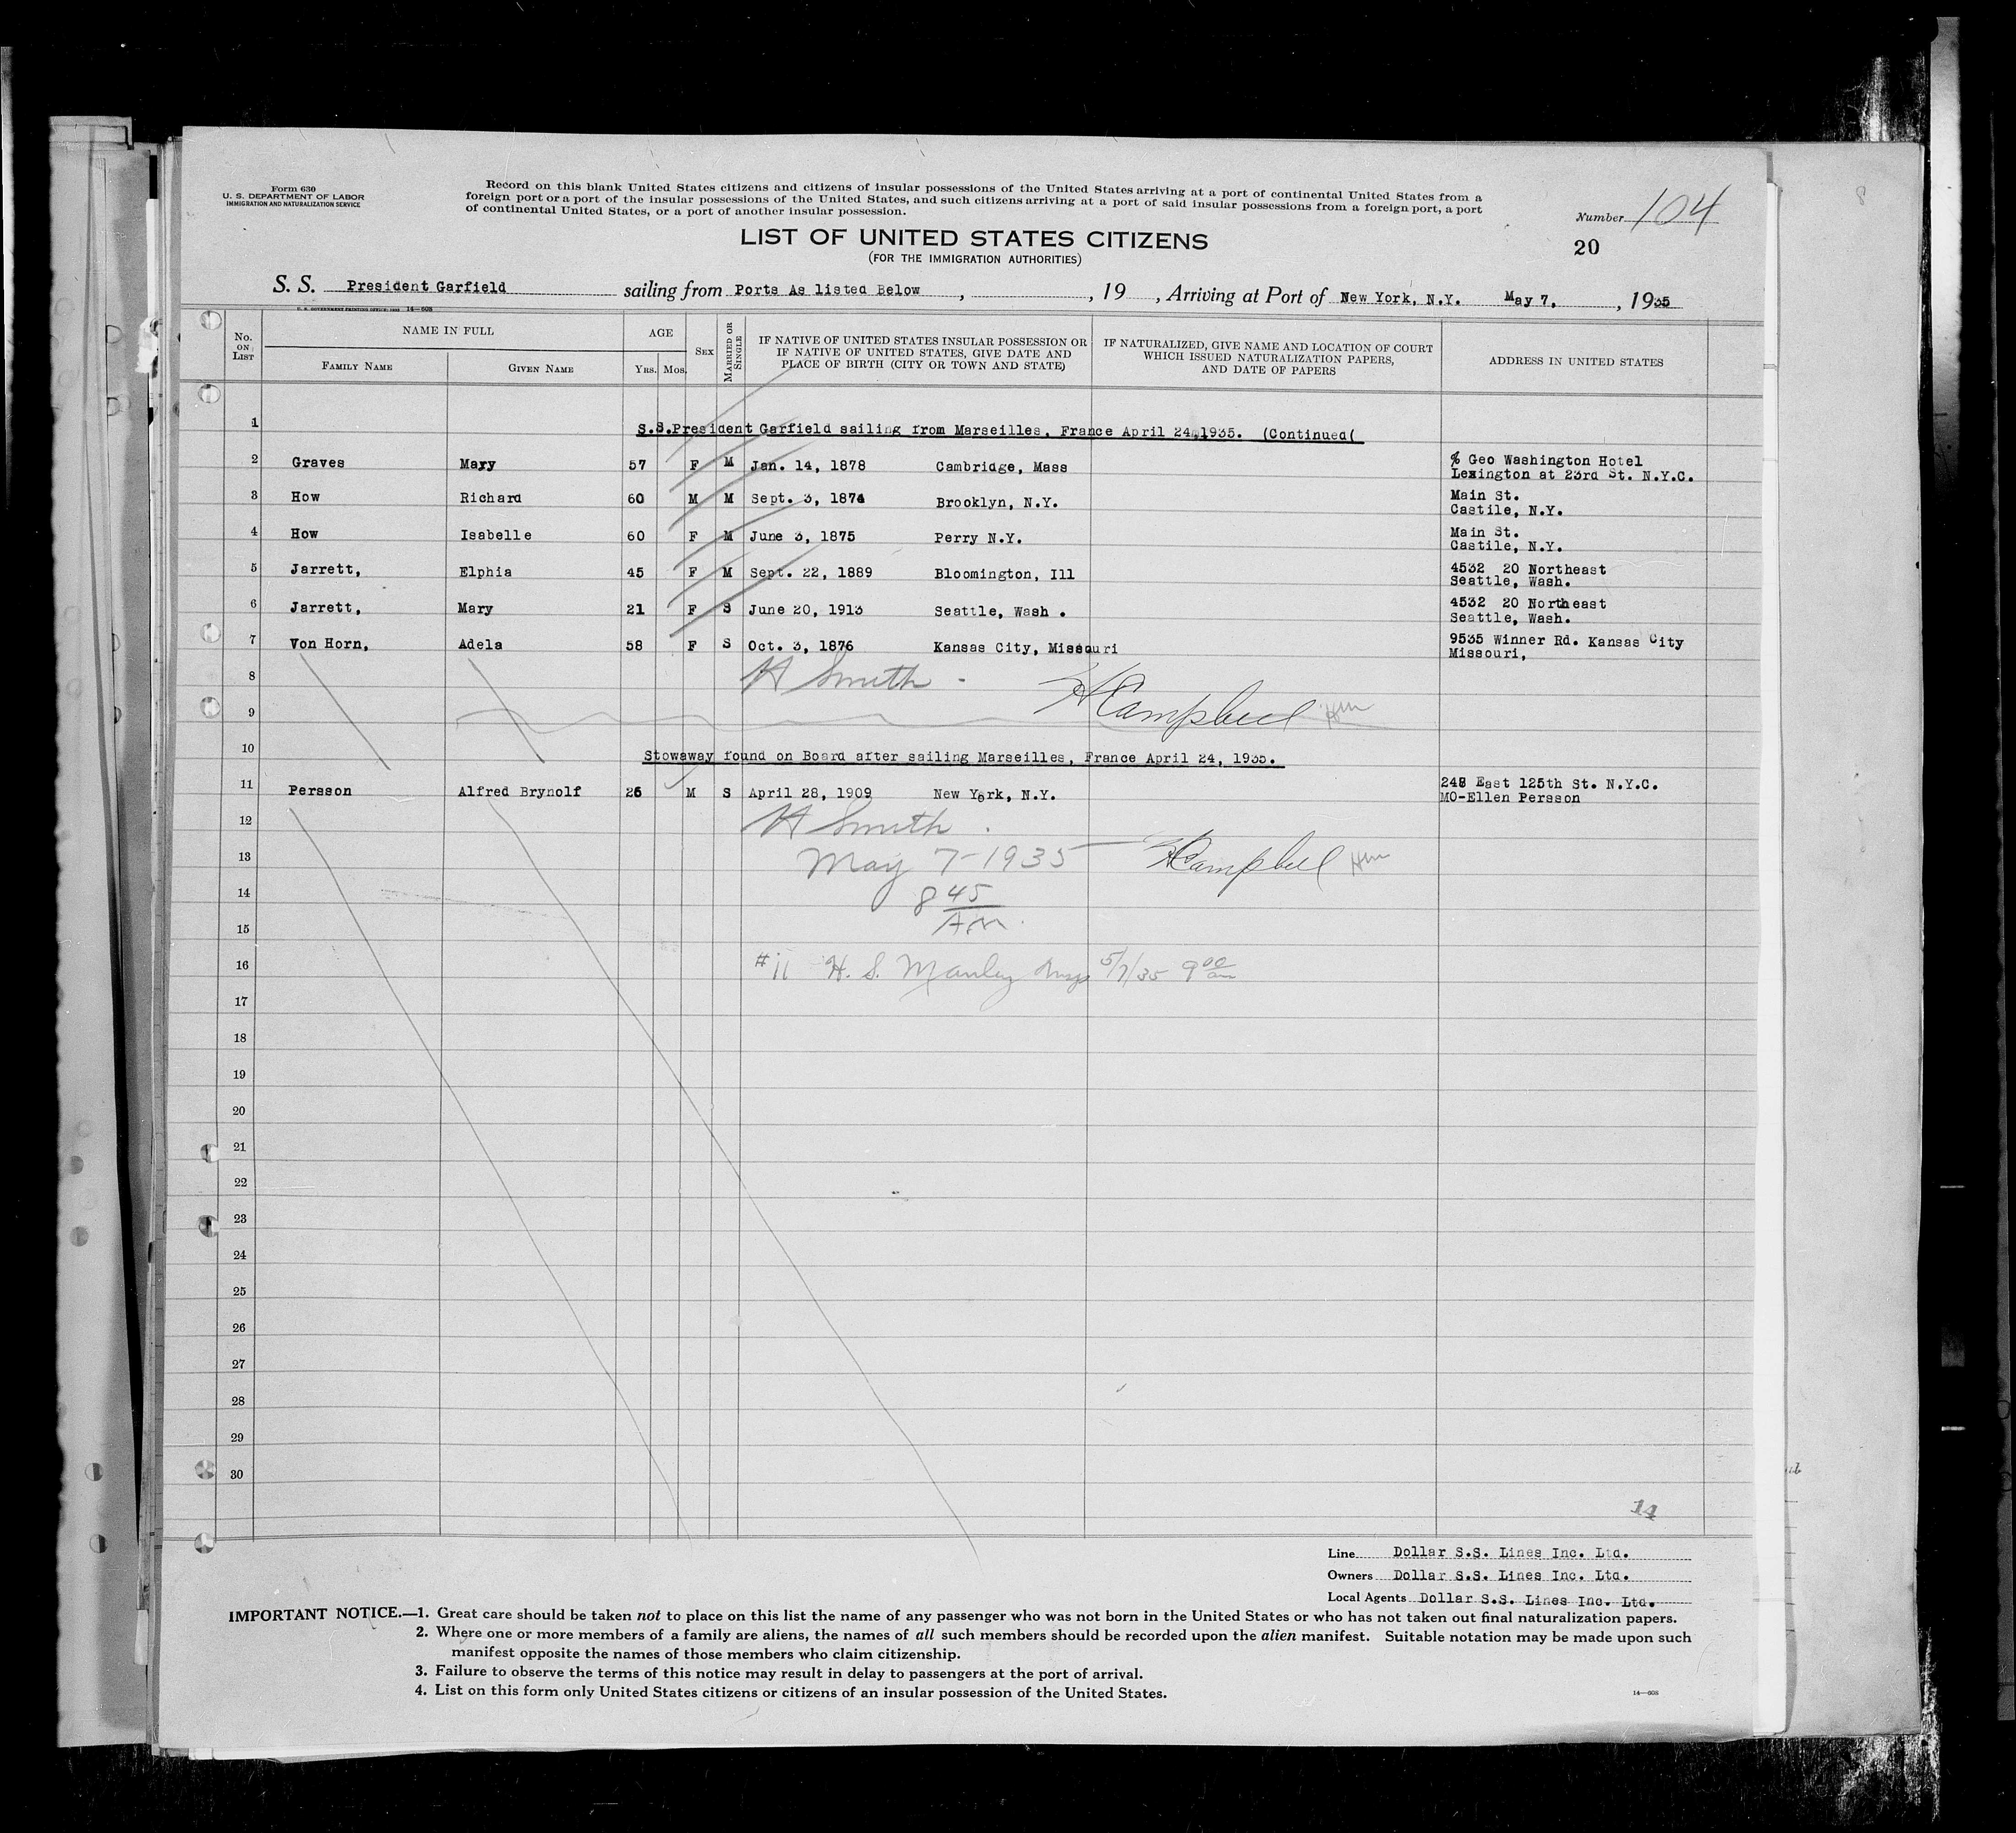 Form 630
U. S. DEPARTMENT OF LABOR
IMMIGRATION AND NATURALIZATION SERVICE
Record on this blank United States citizens and citizens of insular possessions of the United States arriving at a port of continental United States from a
foreign port or a port of the insular possessions of the United States, and such citizens arriving at a port of said insular possessions from a foreign port, a port
of continental United States, or a port of another insular possession.
Number 104
20
LIST OF UNITED STATES CITIZENS
(FOR THE IMMIGRATION AUTHORITIES)
S. S. President Garfield sailing from Ports As listed Below , , 19 , Arriving at Port of New York, N.Y. May 7, , 1935
U. S. GOVERNMENT PRINTING OFFICE: 1933 14—608
No. ON LIST NAME IN FULL AGE SEX MARRIED OR SINGLE IF NATIVE OF UNITED STATES INSULAR POSSESSION OR IF NATIVE OF UNITED STATES, GIVE DATE AND PLACE OF BIRTH (CITY OR TOWN AND STATE) IF NATURALIZED, GIVE NAME AND LOCATION OF COURT WHICH ISSUED NATURALIZATION PAPERS, AND DATE OF PAPERS ADDRESS IN UNITED STATES
FAMILY NAME GIVEN NAME YRS. MOS.
1 S.S.President Garfield sailing from Marseilles, France April 24,1935. (Continued(
2 Graves Mary 57 F M Jan. 14, 1878 Cambridge, Mass % Geo Washington Hotel
Lexington at 23rd St. N.Y.C.
3 How Richard 60 M M Sept. 3, 1874 Brooklyn, N.Y. Main St.
Castile, N.Y.
4 How Isabelle 60 F M June 3, 1875 Perry N.Y. Main St.
Castile, N.Y.
5 Jarrett, Elphia 45 F M Sept. 22, 1889 Bloomington, Ill 4532 20 Northeast
Seattle, Wash.
6 Jarrett, Mary 21 F S June 20, 1913 Seattle, Wash . 4532 20 Northeast
Seattle, Wash.
7 Von Horn, Adela 58 F S Oct. 3, 1876 Kansas City, Missouri 9535 Winner Rd. Kansas City
Missouri,
8 H Smith
9 H Campbell
10 Stowaway found on Board after sailing Marseilles, France April 24, 1935.
11 Persson Alfred Brynolf 26 M S April 28, 1909 New York, N.Y. 248 East 125th St. N.Y.C.
MO-Ellen Persson
12 H Smith
13 May 7-1935 H Campbell
14 8 45
15 AM
16 #11 H. S. Manley Insp 5/7/35 9 00 am
17
18
19
20
21
22
23
24
25
26
27
28
29
30
14
Line Dollar S.S. Lines Inc. Ltd.
Owners Dollar S.S. Lines Inc. Ltd.
Local Agents Dollar S.S. Lines Inc. Ltd.
IMPORTANT NOTICE.—1. Great care should be taken not to place on this list the name of any passenger who was not born in the United States or who has not taken out final naturalization papers.
2. Where one or more members of a family are aliens, the names of all such members should be recorded upon the alien manifest. Suitable notation may be made upon such
manifest opposite the names of those members who claim citizenship.
3. Failure to observe the terms of this notice may result in delay to passengers at the port of arrival.
4. List on this form only United States citizens or citizens of an insular possession of the United States.
14—608